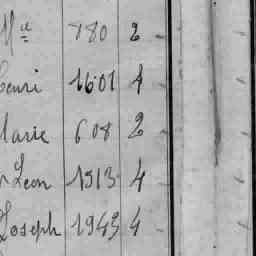 Mle 780 2
Henri 1601 4
Marie 608 2
Léon 1513 4
Joseph 1943 4